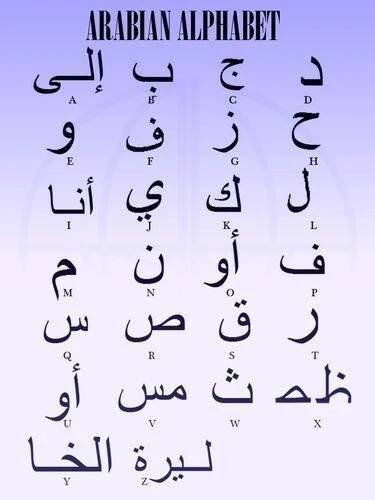 ARABIAN ALPHABET
إلى ب ج د
A B C D
و ف ز ح
E F G H
أنا ي ك ل
I J K L
م ن أو ف
M N O P
س ص ق ر
Q R S T
أو مس ث
U V W X
الخا ليرة
Y Z